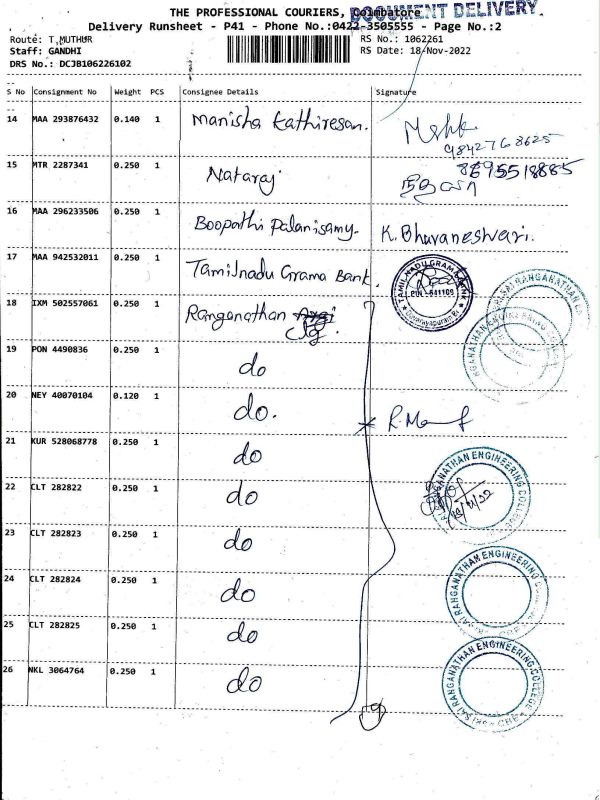 DOCUMENT DELIVERY.
THE PROFESSIONAL COURIERS, Coimbatore
Delivery Runsheet - P41 - Phone No.:0422-3505555 - Page No.:2
Route: T.MUTHUR
RS No.: 1062261
Staff: GANDHI
RS Date: 18-Nov-2022
DRS No.: DCJB106226102
S No Consignment No Weight PCS Consignee Details Signature
14 MAA 293876432 0.140 1 Manisha Kathiresan.
9842768625
15 MTR 2287341 0.250 1 Nataraj 8695518885
16 MAA 296233506 0.250 1 Boopathi Palanisamy. K. Bhuvaneshwari.
17 MAA 942532011 0.250 1 Tamilnadu Grama Bank.
TAMIL NADU GRAMA BANK
PIN - 641109
18 IXM 502557061 0.250 1 Ranganathan Engg.
19 PON 4490836 0.250 1 do
20 NEY 40070104 0.120 1 do.
21 KUR 528068778 0.250 1 do
22 CLT 282822 0.250 1 do
RANGANATHAN ENGINEERING COLLEGE
23 CLT 282823 0.250 1 do
24 CLT 282824 0.250 1 do
SAI RANGANATHAN ENGINEERING COLLEGE
25 CLT 282825 0.250 1 do
26 NKL 3064764 0.250 1 do
SAI RANGANATHAN ENGINEERING COLLEGE